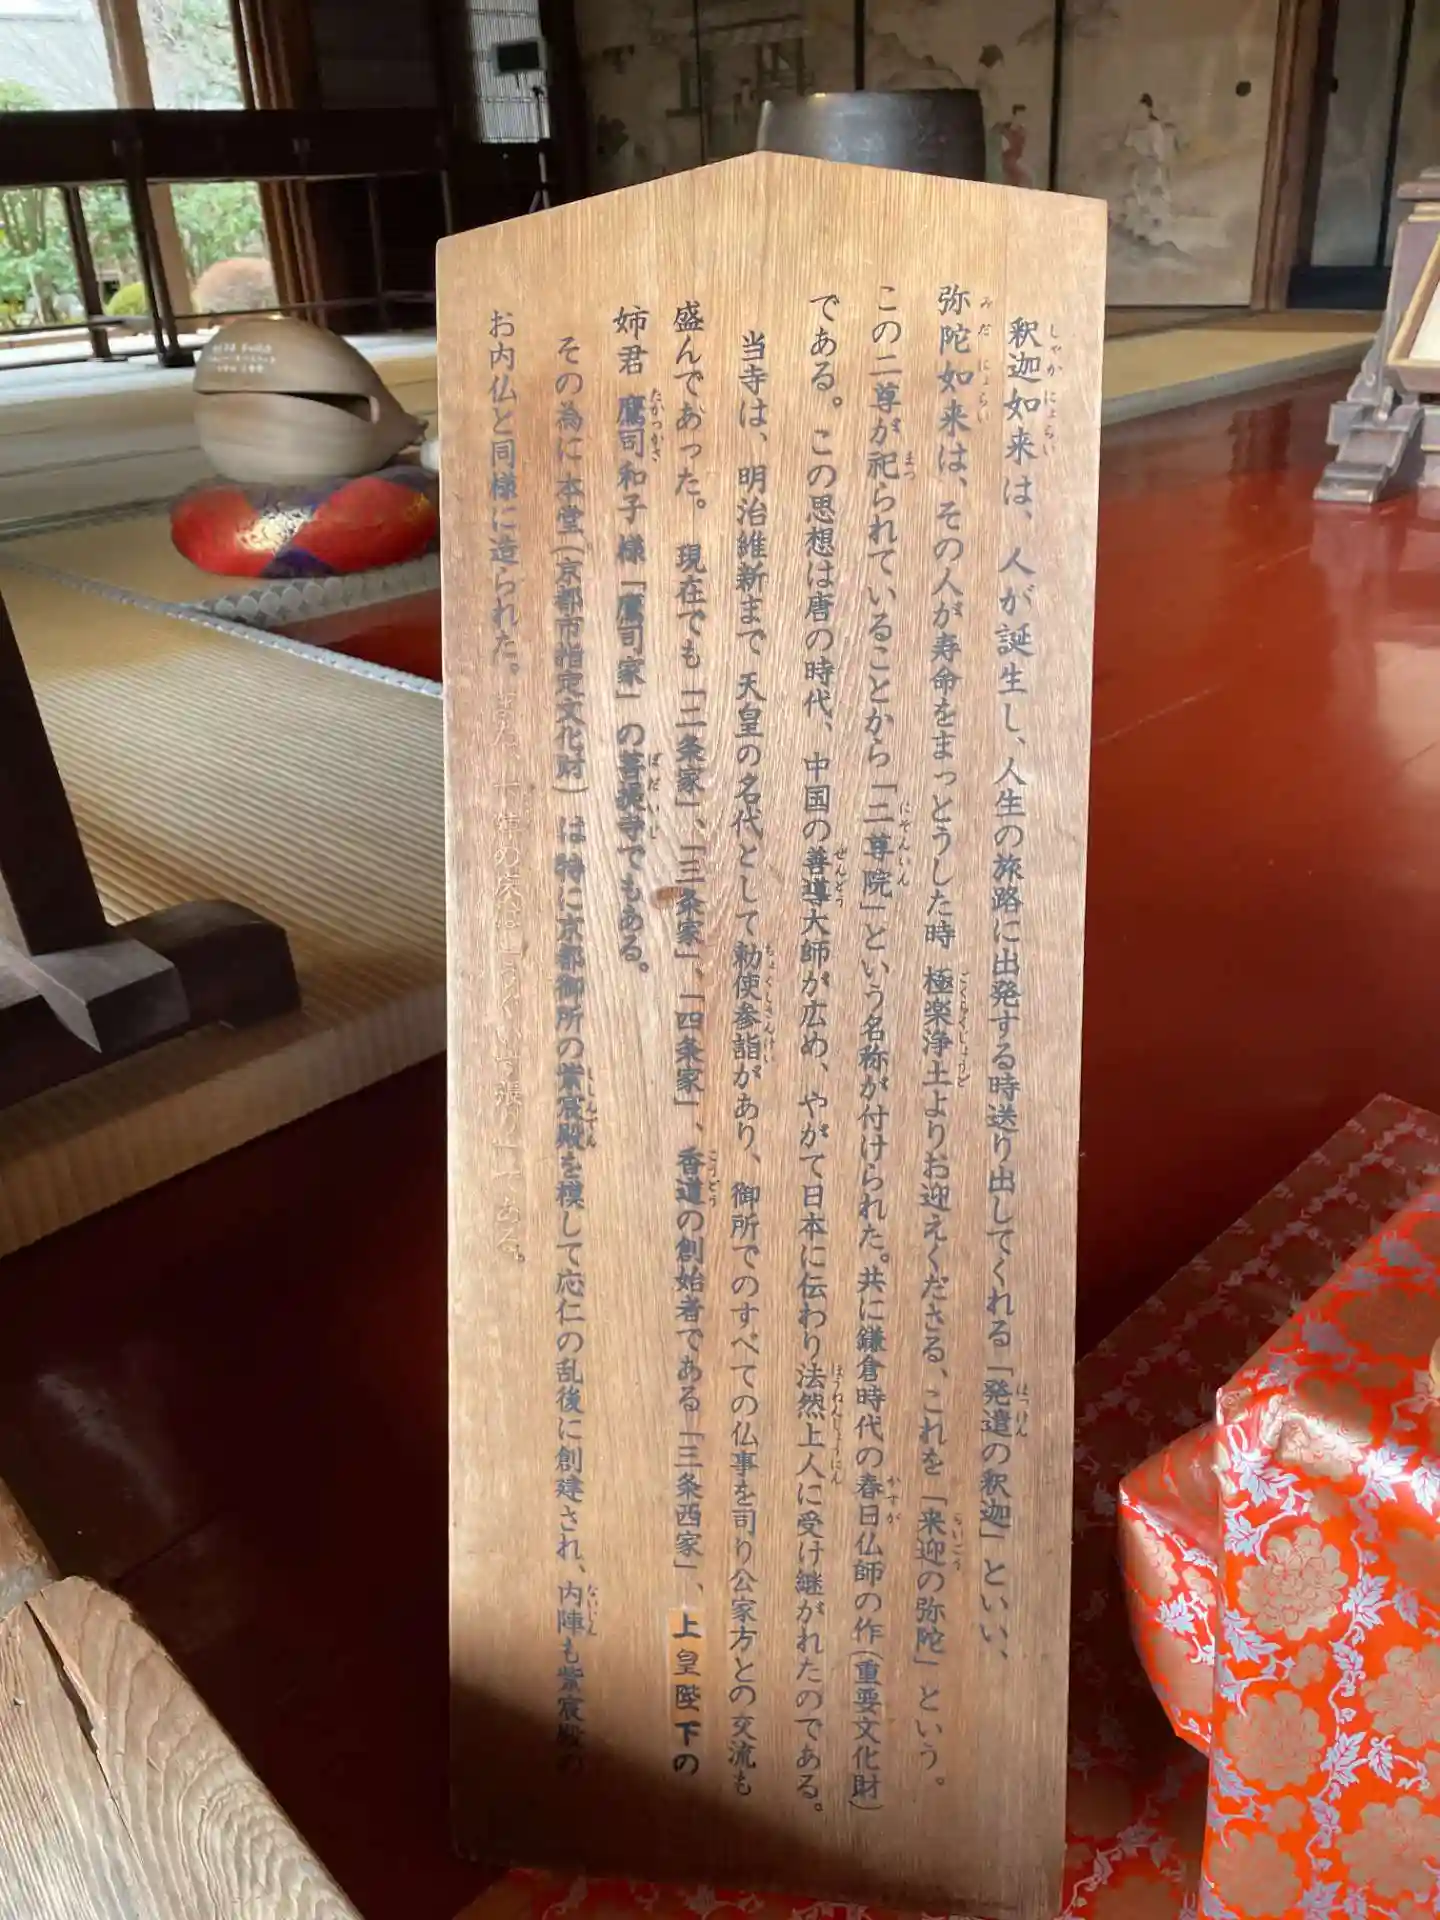 釈迦如来は、人が誕生し、人生の旅路に出発する時送り出してくれる「発遣の釈迦」といい、
弥陀如来は、その人が寿命をまっとうした時 極楽浄土よりお迎えくださる、これを「来迎の弥陀」という。
この二尊が祀られていることから「二尊院」という名称が付けられた。共に鎌倉時代の春日仏師の作(重要文化財)
である。この思想は唐の時代、中国の善導大師が広め、やがて日本に伝わり法然上人に受け継がれたのである。
当寺は、明治維新まで 天皇の名代として勅使参詣があり、御所でのすべての仏事を司り公家方との交流も
盛んであった。 現在でも「二条家」、「三条家」、「四条家」、香道の創始者である「三条西家」、上皇陛下の
姉君 鷹司和子様「鷹司家」の菩提寺でもある。
その為に本堂(京都市指定文化財)は特に京都御所の紫宸殿を模して応仁の乱後に創建され、内陣も紫宸殿の
お内仏と同様に造られた。また、の床は「うぐいす張り」である。